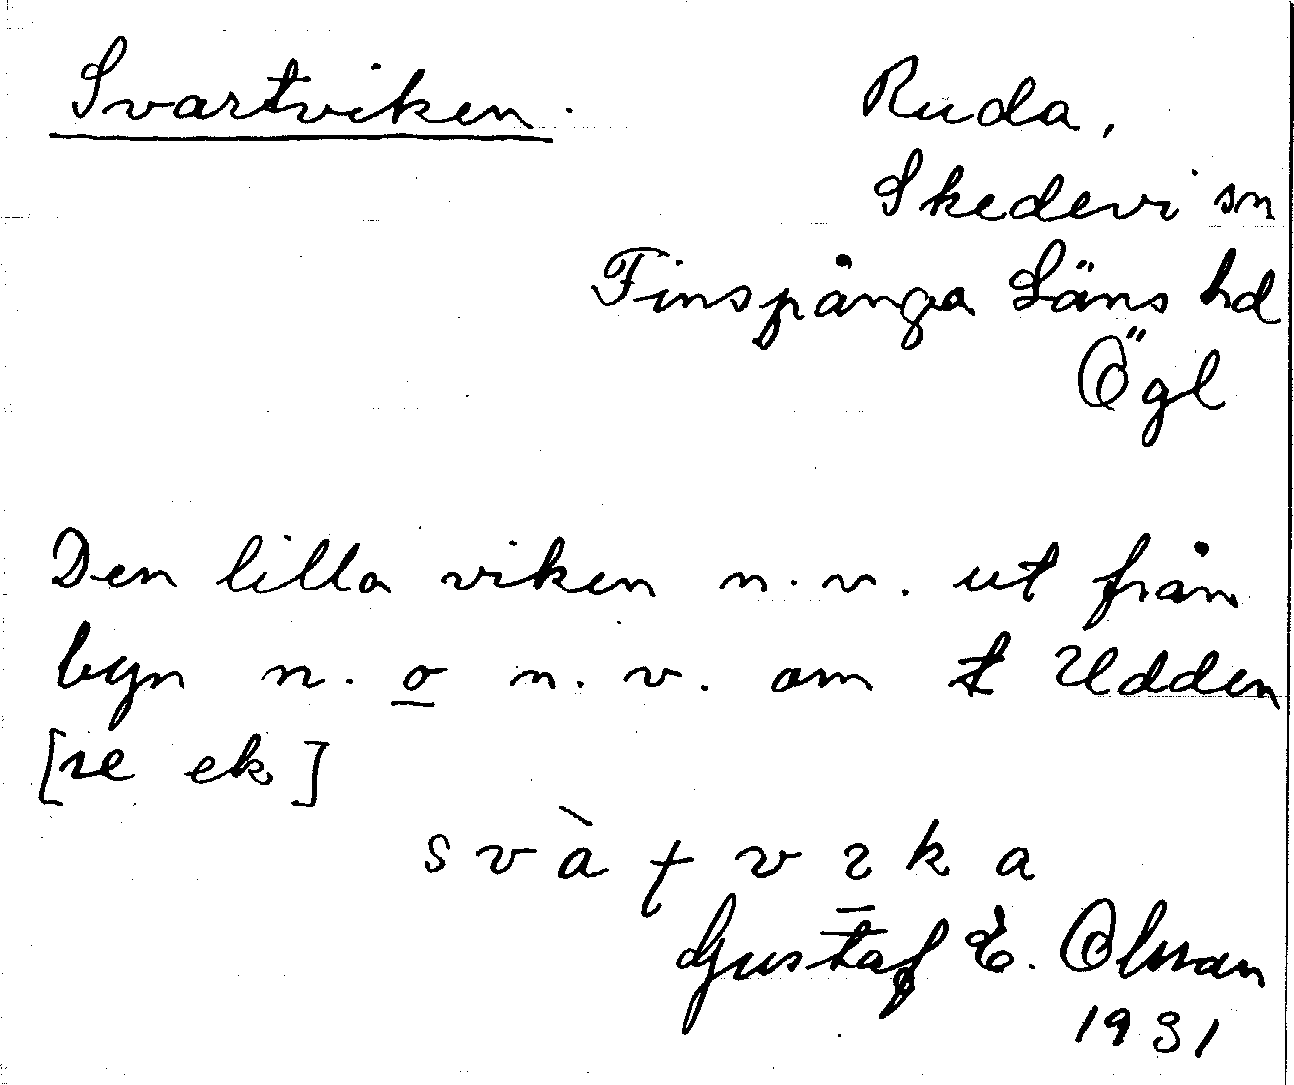 Svartviken.
Ruda,
Skedevi sn
Finspånga Läns hd
Ögl
Den lilla viken n.v. ut från
byn n. o n.v. om Udden
[se ek]
Gustaf E. Olsson
1931